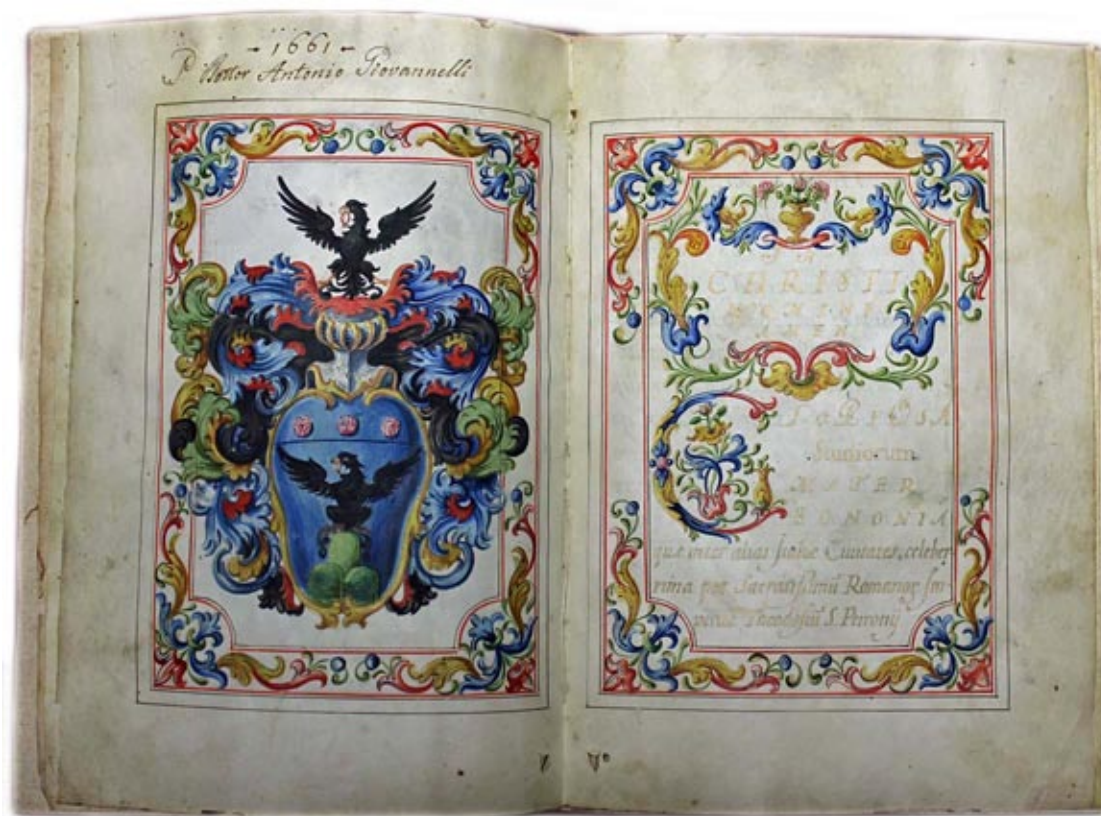 - 1661 -
P Dottor Antonio Giovannelli
CHRISTI
NOMINE
AMEN
Studiorum
MATER
BONONIA
quæ inter alias Italiæ Civitates, celeber-
rima per Sacratissimū Romanor Im-
Theodosiū S. Petronij